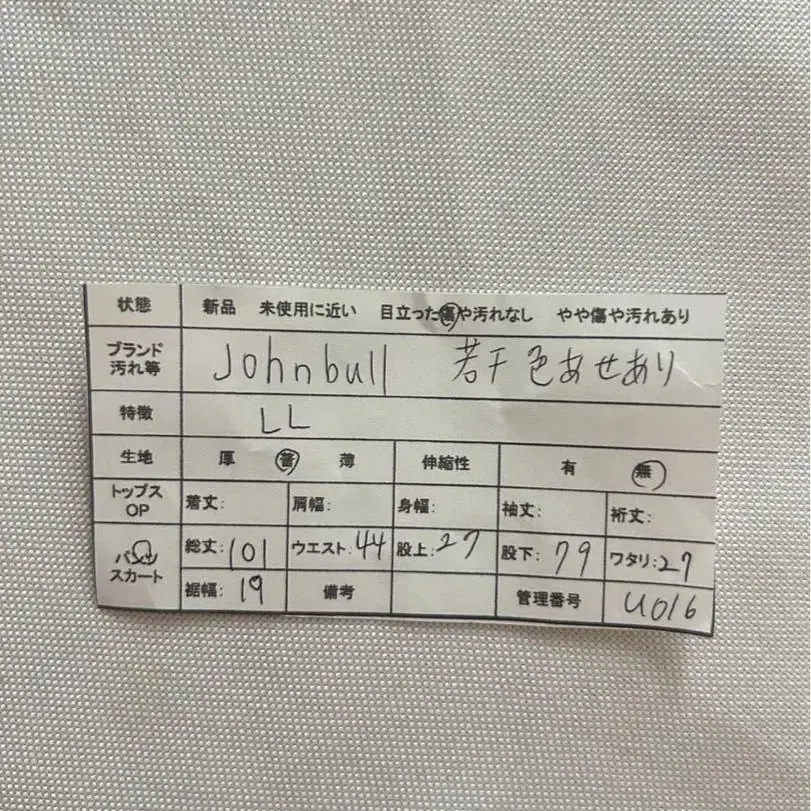 状態 新品 未使用に近い 目立った傷や汚れなし やや傷や汚れあり
ブランド 汚れ等 Johnbull 若干色あせあり
特徴 LL
生地 厚 普 薄 伸縮性 有 無
トップス OP 着丈: 肩幅: 身幅: 袖丈: 裄丈:
パンツ スカート 総丈:101 ウエスト:44 股上:27 股下:79 ワタリ:27
裾幅:19 備考 管理番号 U016